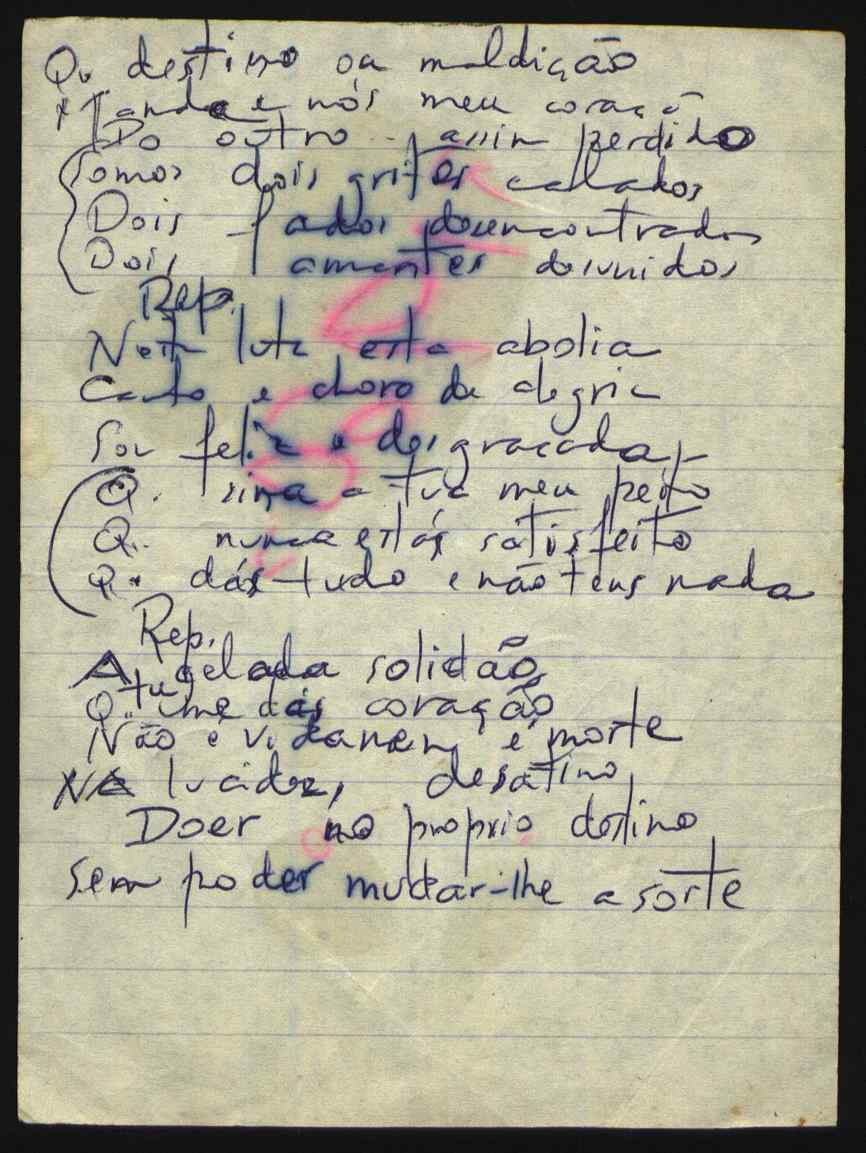 Q. destino ou maldição
Manda e nós meu coraçã
Do outro .. assim perdido
Somos dois gritos calados
Dois fados desencontrados
Dois amantes desunidos
Rep.
Nesta luta esta abolia
Canto e choro de alegria
Sou feliz e desgraçada
Q. sina a tua meu peito
Q.. nunca estás satisfeito
Q.. dás tudo e não tens nada
Rep.
A gelada solidão
Q. tu me dás coração
Não é vida nem é morte
Na lucidez, desatino,
Doer no proprio destino
sem poder mudar-lhe a sorte